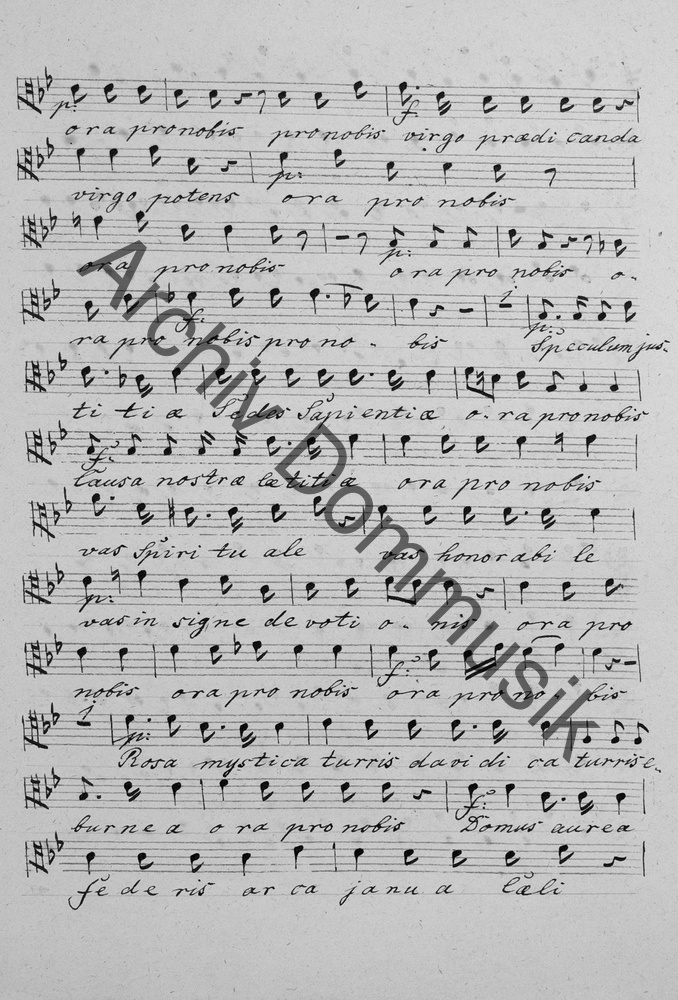 p:
f:
ora pro nobis pro nobis virgo prædicanda
p:
virgo potens ora pro nobis
p:
ora pro nobis ora pro nobis o-
f:
1
p:
ra pro nobis pro no - bis Speculum jus-
titiæ Sedes Sapientiæ o-ra pro nobis
f:
Causa nostræ lætitiæ ora pro nobis
vas Spirituale vas honorabile
p:
vas insigne devotio-nis ora pro
f:
nobis ora pro nobis ora pro no - bis
1
p:
Rosa mystica turris davidica turris e-
f:
burnea ora pro nobis Domus aurea
fæderis arca janua Cæli
Archiv Dommusik